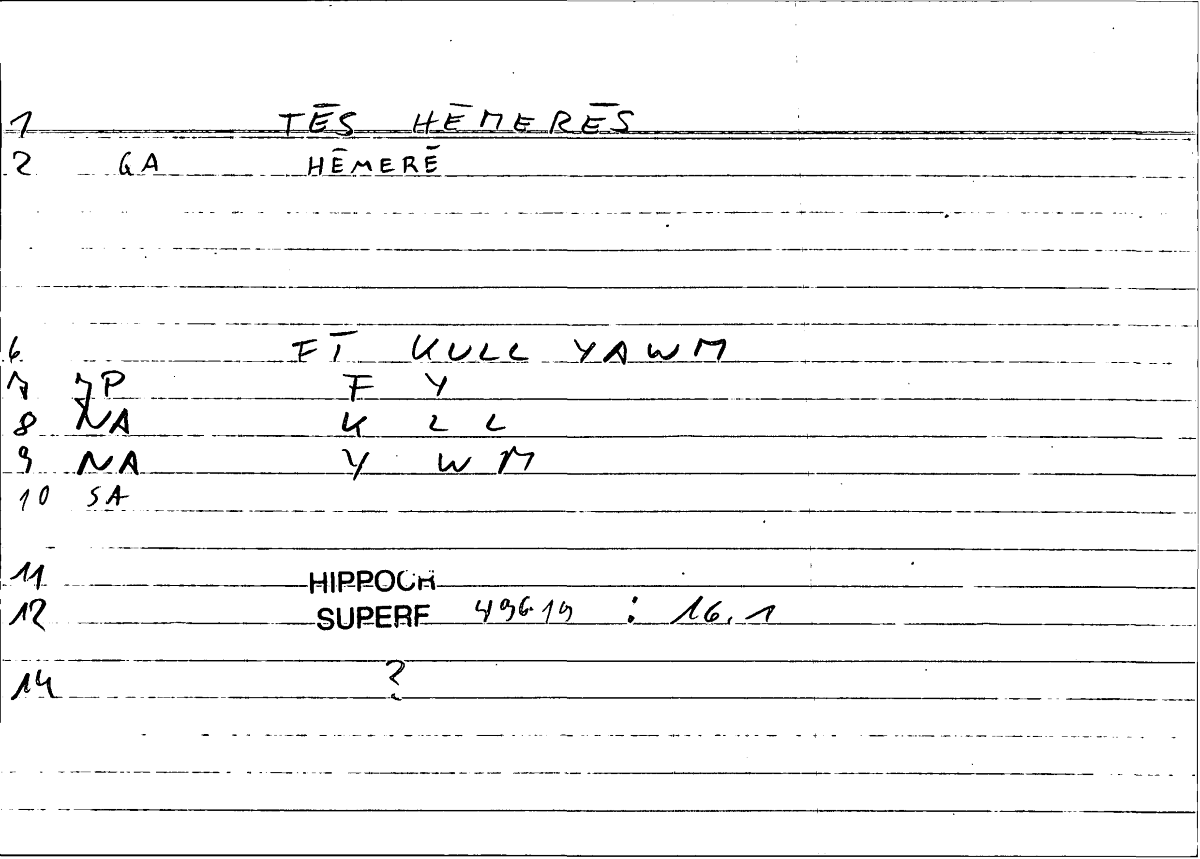 1 TĒS HĒMERĒS
2 GA HĒMERĒ
6 FĪ KULL YAWM
7 JP F Y
8 NA K L L
9 NA Y W M
10 SA
11 HIPPOCR
12 SUPERF 49619 : 16,1
14 ?